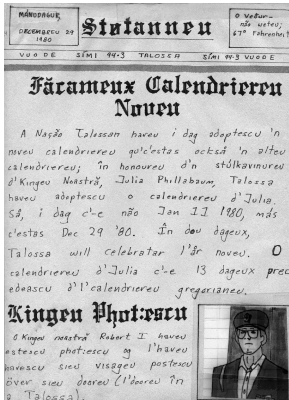 MÁNODAGUË,
DECEMBEREU 29
1980
Støtanneu
O Veður-
não weteu;
67° Fahrenheit
VUODE SÍMI 94-3 TALOSSA SÍMI 94-3 VUODE
Făcameux Calendriereu
Noveu
A Nação Talossan haveu i dag adoptescu 'n
noveu calendriereu qu'c'estas också 'n alteu
calendriereu; în honoureu d'n stúlkavinureu
d'Kingeu Noastră, Julia Phillabaum, Talossa
haveu adoptescu o calendriereu d'Julia.
Så, i dag c'-e não Jan II 1980, más
c'estas Dec 29 '80. În dou dageux,
Talossa will celebratar l'år noveu. O
calendriereu d'Julia c'-e 13 dageux prec
edoascu d'l'calendriereu gregorianeu.
Kingeu Phot:escu
O Kingeu noastră Robert I haveu
estescu phot:escu og l'haveu
havescu sieu visageu postescu
över sieu dooreu (l'dooreu în
a Talossa)